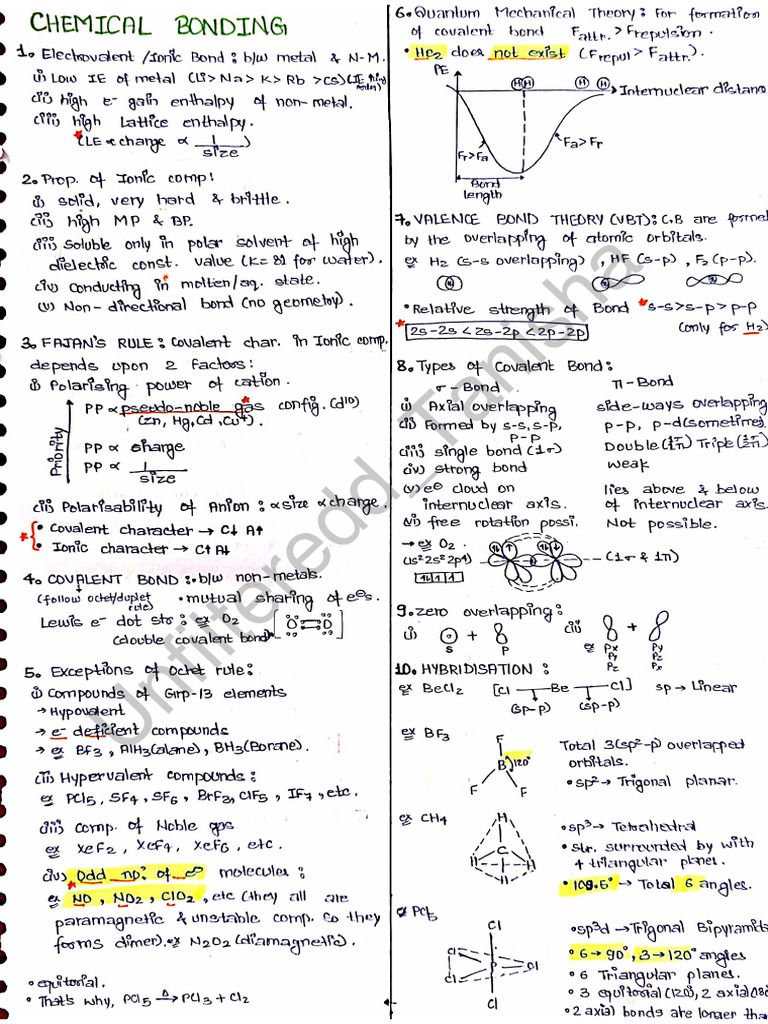 CHEMICAL BONDING
1. Electrovalent /Ionic Bond : b/w metal & N-M.
(i) Low IE of metal (Li > Na > K > Rb > Cs)
(ii) high e- gain enthalpy of non-metal.
(iii) high Lattice enthalpy.
*(LE ∝ charge ∝ 1/size)
2. Prop. of Ionic comp:
(i) solid, very hard & brittle.
(ii) high MP & BP.
(iii) soluble only in polar solvent of high
dielectric const. value (K= 81 for water).
(iv) Conducting in molten/aq. state.
(v) Non-directional bond (no geometry).
3. FAJAN'S RULE : Covalent char. in Ionic comp.
depends upon 2 factors :
(i) Polarising power of cation.
Priority
PP ∝ pseudo-noble gas config. (d10)
(Zn, Hg, Cd, Cu+)
PP ∝ charge
PP ∝ 1/size
(ii) Polarisability of Anion : ∝ size ∝ charge.
* • Covalent character → C↓ A↑
• Ionic character → C↑ A↓
4. COVALENT BOND : b/w non-metals.
(follow octet/duplet rule)
• mutual sharing of e⊖s.
Lewis e- dot str : ex O2 [O=O]
(double covalent bond)
5. Exceptions of Octet rule :
(i) Compounds of Grp-13 elements
→ Hypovalent
→ e- deficient compounds
→ ex BF3, AlH3(alane), BH3(Borane).
(ii) Hypervalent compounds :
ex PCl5, SF4, SF6, BrF3, ClF5, IF7, etc.
(iii) comp. of Noble gas
ex XeF2, XeF4, XeF6, etc.
(iv) Odd no. of e⊖ molecules :
ex NO, NO2, ClO2, etc (they all are
paramagnetic & unstable comp. so they
forms dimer). ex N2O2 (diamagnetic).
• equitorial.
• That's why, PCl5 Δ→ PCl3 + Cl2
6. Quantum Mechanical Theory : For formation
of covalent bond Fattr. > Frepulsion.
• He2 does not exist (Frepul > Fattr.).
PE
HH H H
→ Internuclear distanc
Fr>Fa
Fa>Fr
Bond
length
7. VALENCE BOND THEORY (VBT) : C.B are formed
by the overlapping of atomic orbitals.
ex H2 (s-s overlapping), HF (s-p), F2 (p-p).
• Relative strength of Bond *s-s>s-p>p-p
* 2s-2s < 2s-2p < 2p-2p (only for H2)
8. Types of Covalent Bond :
σ - Bond π - Bond
(i) Axial overlapping side-ways overlapping
(ii) Formed by s-s, s-p, p-p p-p, p-d (sometime)
(iii) single bond (1σ) Double (1σ 1π) Triple (1σ 2π)
(iv) strong bond weak
(v) e⊖ cloud on internuclear axis. lies above & below of internuclear axis.
(vi) free rotation possi. Not possible.
→ ex O2
(1s² 2s² 2p4)
(1σ & 1π)
9. zero overlapping :
(i) S + P
(ii) + 
ex Px Py
Py Pz
Pz Px
10. HYBRIDISATION :
ex BeCl2 [Cl — Be — Cl] sp → Linear
(sp-p) (sp-p)
ex BF3
F
B 120°
F F
Total 3(sp²-p) overlapped
orbitals.
• sp² → Trigonal planar.
ex CH4
H
C
H H H
• sp³ → Tetrahedral
• str. surrounded by with
4 triangular planes.
• 109.5° → Total 6 angles.
ex PCl5
Cl
Cl P Cl
Cl
Cl
• sp³d → Trigonal Bipyramida
• 6 → 90°, 3 → 120° angles
• 6 Triangular planes.
• 3 equitorial (120°), 2 axial (180
• 2 axial bonds are longer tha
Unfilteredd_Tanisha